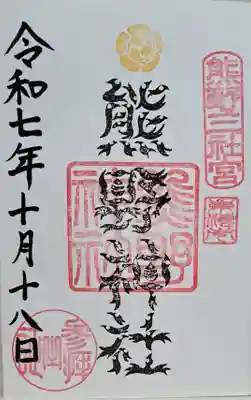 熊野三社宮
熊野神社
熊野神社
令和七年十月十八日